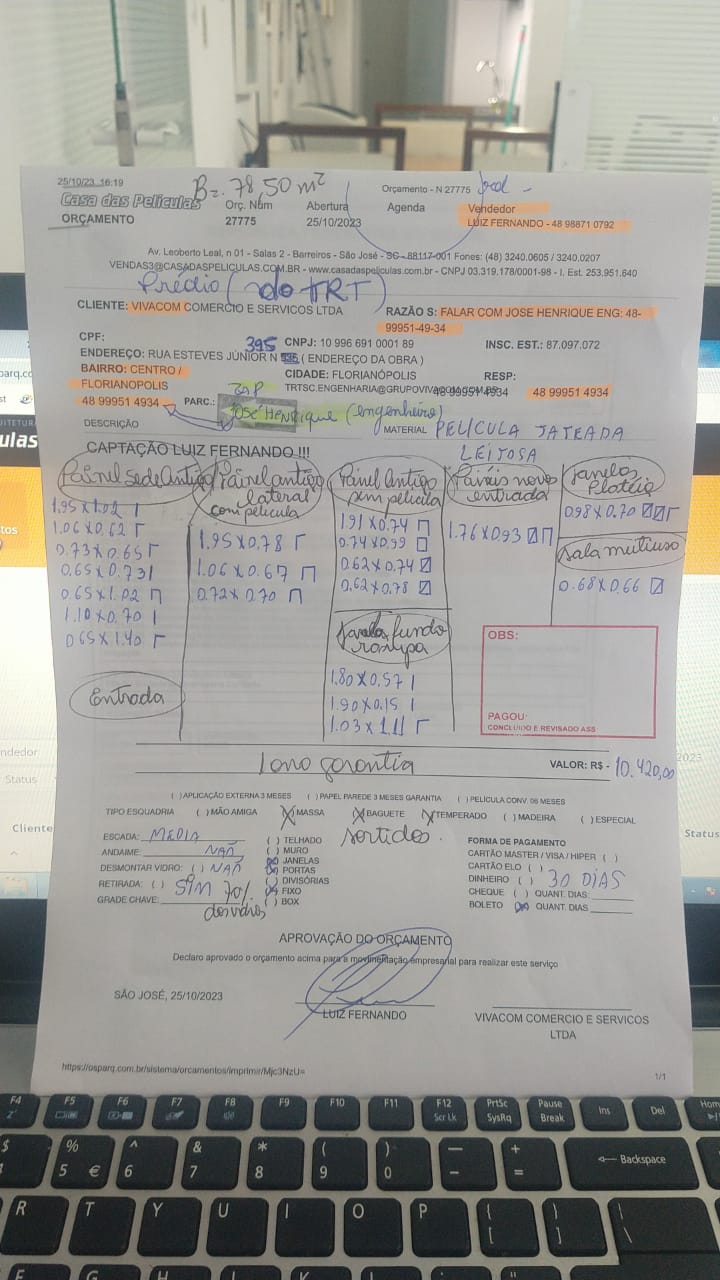 25/10/23 16:19
B=. 78,50 m²
Orçamento - N 27775
Casa das Películas
ORÇAMENTO
Orç. Núm
27775
Abertura
25/10/2023
Agenda
Vendedor
LUIZ FERNANDO - 48 98871 0792
Av. Leoberto Leal, n 01 - Salas 2 - Barreiros - São José - SC - 88117-001 Fones: (48) 3240.0605 / 3240.0207
VENDAS3@CASADASPELICULAS.COM.BR - www.casadaspeliculas.com.br - CNPJ 03.319.178/0001-98 - I. Est. 253.951.640
Prédio (do TRT)
CLIENTE: VIVACOM COMERCIO E SERVICOS LTDA
RAZÃO S: FALAR COM JOSE HENRIQUE ENG: 48-
99951-49-34
CPF:
395 CNPJ: 10 996 691 0001 89
INSC. EST.: 87.097.072
ENDEREÇO: RUA ESTEVES JÚNIOR N ( ENDEREÇO DA OBRA )
BAIRRO: CENTRO /
FLORIANOPOLIS
CIDADE: FLORIANÓPOLIS
RESP:
TRTSC.ENGENHARIA@GRUPOVIVACOM.COM
48 99951 4934
48 99951 4934
48 99951 4934
PARC.:
ZAP
José Henrique (engenheiro)
DESCRIÇÃO
MATERIAL PELÍCULA JATEADA
LEITOSA
CAPTAÇÃO LUIZ FERNANDO !!!
Painel Sede Antigo
1.95 x 1.02
1.06 x 0.62
0.73 x 0.65
0.65 x 0.73
0.65 x 1.02
1.10 x 0.70
0.65 x 1.40
Entrada
Painel antigo
lateral
com película
1.95 x 0,78
1.06 x 0.67
0.72 x 0.70
Painel Antigo
sem película
1.91 x 0.74
0.74 x 0.99
0.62 x 0.74
0,62 x 0.78
Janela fundo
rampa
1.80 x 0.57
1.90 x 0.15
1.03 x 1.11
Painéis novo
entrada
1.76 x 0.93
Janelas
Platéia
0.98 x 0.70
Sala multiuso
0.68 x 0.66
OBS:
PAGOU:
CONCLUIDO E REVISADO ASS
1 ano garantia
VALOR: R$ - 10.420,00
( ) APLICAÇÃO EXTERNA 3 MESES ( ) PAPEL PAREDE 3 MESES GARANTIA ( ) PELÍCULA CONV. 06 MESES
TIPO ESQUADRIA ( ) MÃO AMIGA (X) MASSA (X) BAGUETE (X) TEMPERADO ( ) MADEIRA ( ) ESPECIAL
sortidos.
ESCADA: MEDIA
ANDAIME: NÃO
DESMONTAR VIDRO: ( ) NÃO
RETIRADA: ( ) SIM 70%
dos vidros
GRADE CHAVE:
( ) TELHADO
( ) MURO
(X) JANELAS
(X) PORTAS
( ) DIVISÓRIAS
(X) FIXO
( ) BOX
FORMA DE PAGAMENTO
CARTÃO MASTER / VISA / HIPER ( )
CARTÃO ELO ( )
DINHEIRO ( ) 30 DIAS
CHEQUE ( ) QUANT. DIAS:
BOLETO (X) QUANT. DIAS
APROVAÇÃO DO ORÇAMENTO
Declaro aprovado o orçamento acima para a movimentação empresarial para realizar este serviço
SÃO JOSÉ, 25/10/2023
LUIZ FERNANDO
VIVACOM COMERCIO E SERVICOS
LTDA
https://osparq.com.br/sistema/orcamentos/imprimir/Mjc3NzU=
1/1
ulas
Cliente
Status
Status
2023
F4 F5 F6 F7 F8 F9 F10 F11 F12 PrtSc Pause Ins Del Hom
Scr Lk SysRq Break
$ % ^ & * ( ) — +
5 € 6 7 8 9 0 - = Backspace
R T Y U I O P { }
[ ] \